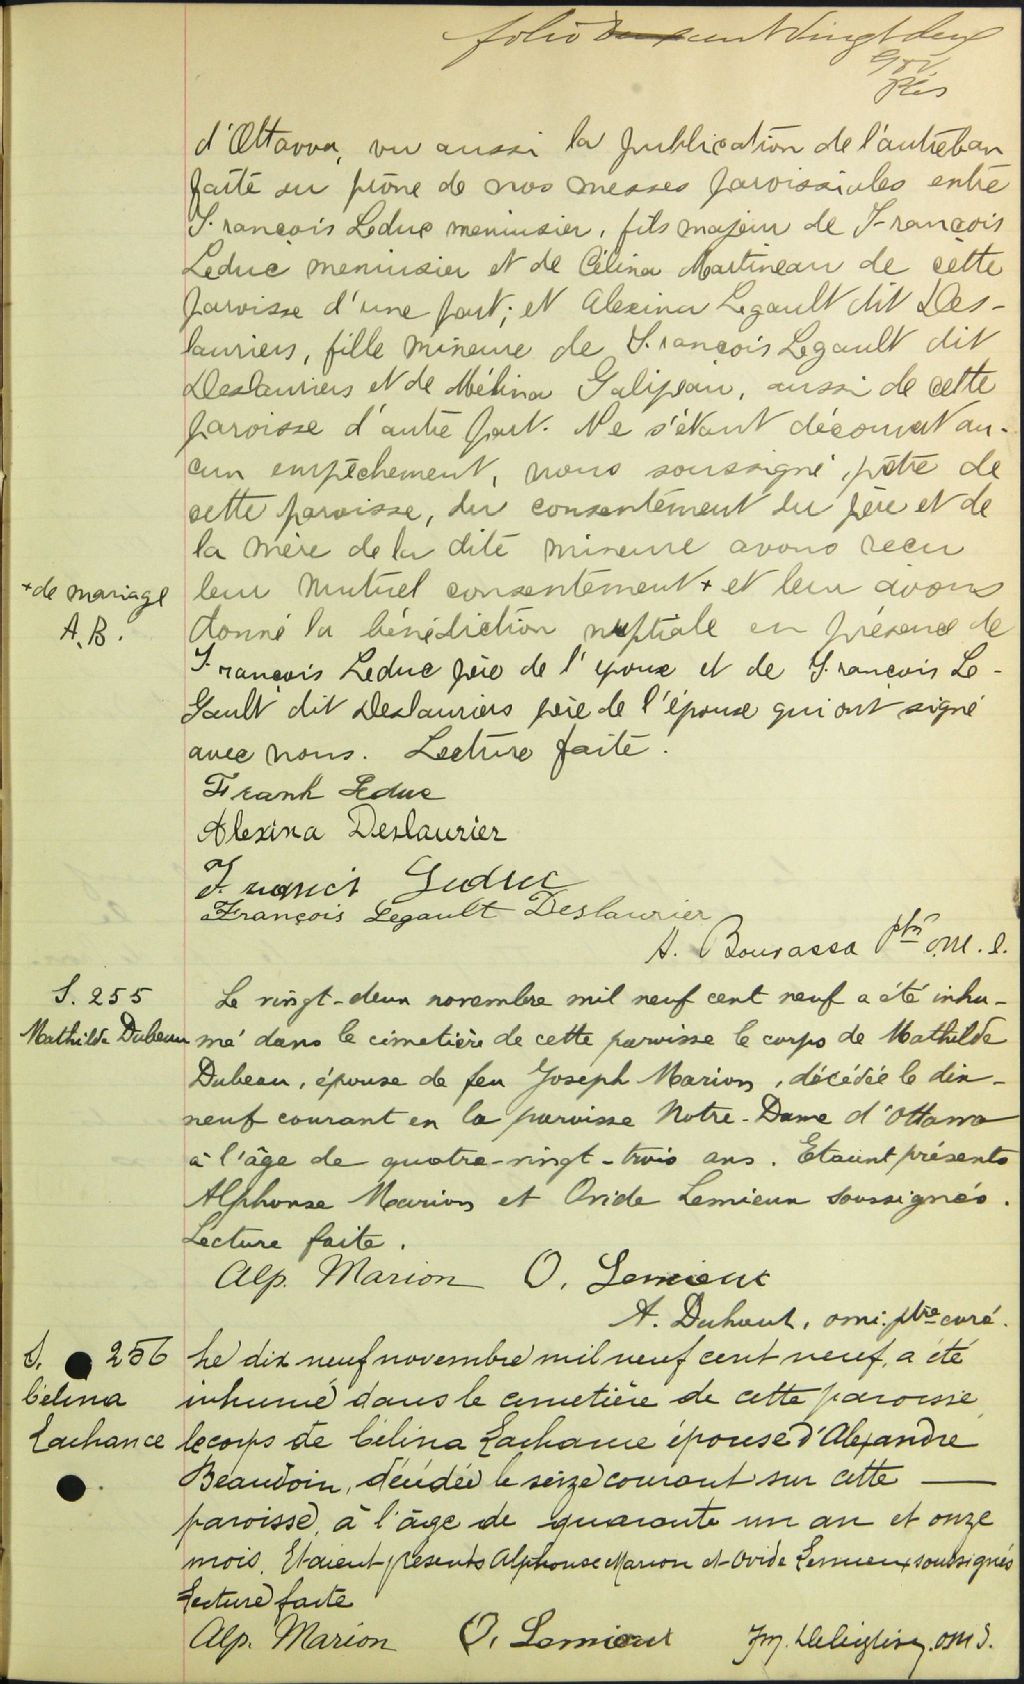 folio deux cent vingt deux
d'Ottawa, vu aussi la publication de l'autre ban
faite au prône de nos messes paroissiales entre
François Leduc menuisier, fils majeur de François
Leduc menuisier et de Célina Martineau de cette
paroisse d'une part; et Alexina Legault dit Des-
lauriers, fille mineure de François Legault dit
Deslauriers et de Mélina Galipeau, aussi de cette
paroisse d'autre part. Ne s'étant découvert au-
cun empêchement, nous soussigné, ptre de
cette paroisse, du consentement du père et de
la mère de la dite mineure avons reçu
+ de mariage
A. B.
leur mutuel consentement + et leur avons
donné la bénédiction nuptiale en présence de
François Leduc père de l'époux et de François Le-
Gault dit Deslauriers père de l'épouse qui ont signé
avec nous. Lecture faite.
Frank Leduc
Alexina Deslaurier
Francis Leduc
François Legault Deslaurier
A. Bourassa ptre O.M.I.
S. 255
Mathilde Dubeau
Le vingt-deux novembre mil neuf cent neuf a été inhu-
mé dans le cimetière de cette paroisse le corps de Mathilde
Dubeau, épouse de feu Joseph Marion, décédée le dix-
neuf courant en la paroisse Notre-Dame d'Ottawa
à l'âge de quatre-vingt-trois ans. Etaient présents
Alphonse Marion et Ovide Lemieux soussignés.
Lecture faite.
Alp. Marion O. Lemieux
A. Duhaut, omi. ptre curé.
S. 256
Célina
Lachance
Le dix neuf novembre mil neuf cent neuf, a été
inhumé dans le cimetière de cette paroisse
le corps de Célina Lachance épouse d'Alexandre
Beaudoin, décédée le seize courant sur cette
paroisse, à l'âge de quarante un an et onze
mois. Etaient présents Alphonse Marion et Ovide Lemieux soussignés
Lecture faite
Alp. Marion O. Lemieux O.M.I.